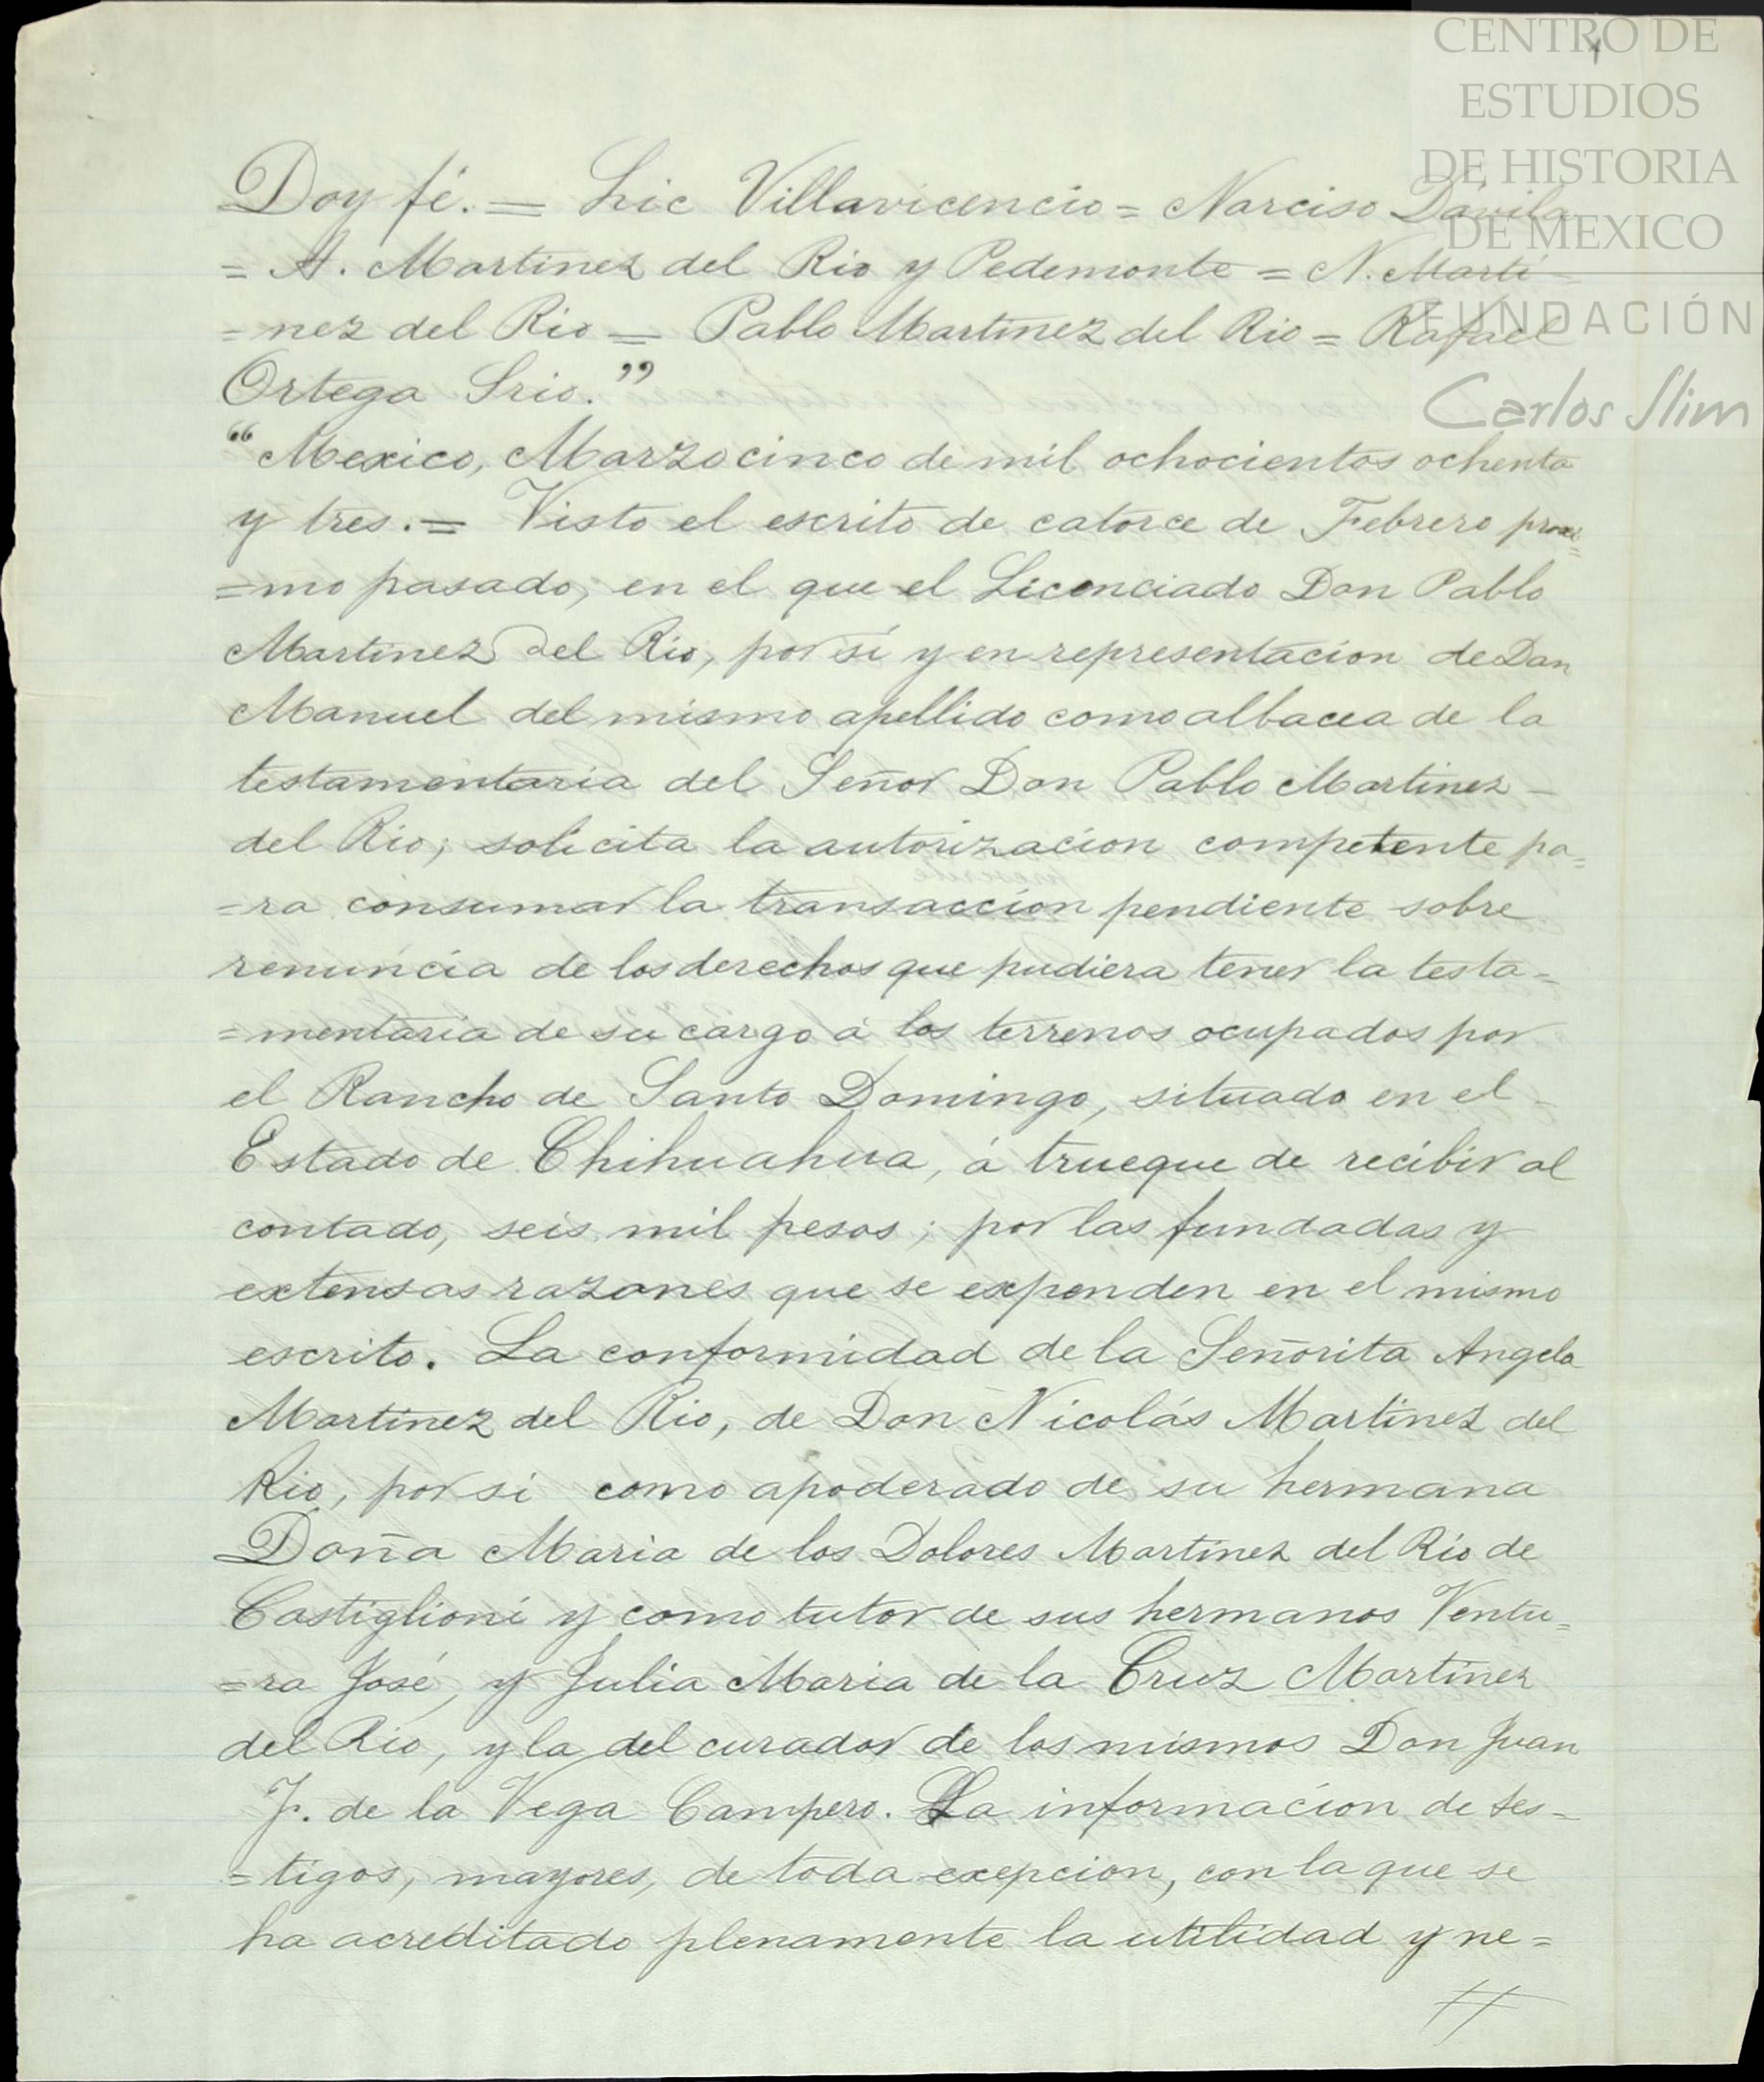 CENTRO DE
ESTUDIOS
DE HISTORIA
DE MEXICO
FUNDACIÓN
Carlos Slim
Doy fé. = Lic Villavicencio = Narciso Dávila
= A. Martinez del Rio y Pedemonte = N. Marti
= nez del Rio = Pablo Martinez del Rio = Rafael
Ortega Srio."
"Mexico, Marzo cinco de mil ochocientos ochenta
y tres. = Visto el escrito de catorce de Febrero proxi=
=mo pasado, en el que el Licenciado Don Pablo
Martinez del Rio, por sí y en representacion de Don
Manuel del mismo apellido como albacea de la
testamentaria del Señor Don Pablo Martinez -
del Rio; solicita la autorizacion competente pa=
=ra consumar la transaccion pendiente sobre
renuncia de los derechos que pudiera tener la testa=
=mentaria de su cargo á los terrenos ocupados por
el Rancho de Santo Domingo, situado en el -
Estado de Chihuahua, á trueque de recibir al
contado, seis mil pesos; por las fundadas y
extensas razones que se expenden en el mismo
escrito. La conformidad de la Señorita Angela
Martinez del Rio, de Don Nicolás Martinez del
Rio, por si como apoderado de su hermana
Doña Maria de los Dolores Martinez del Rio de
Castiglioni y como tutor de sus hermanos Ventu=
=ra José, y Julia Maria de la Cruz Martinez
del Rio, y la del curador de los mismos Don Juan
J. de la Vega Campero. La informacion de tes=
=tigos, mayores, de toda exepcion, con la que se
ha acreditado plenamente la utilidad y ne=